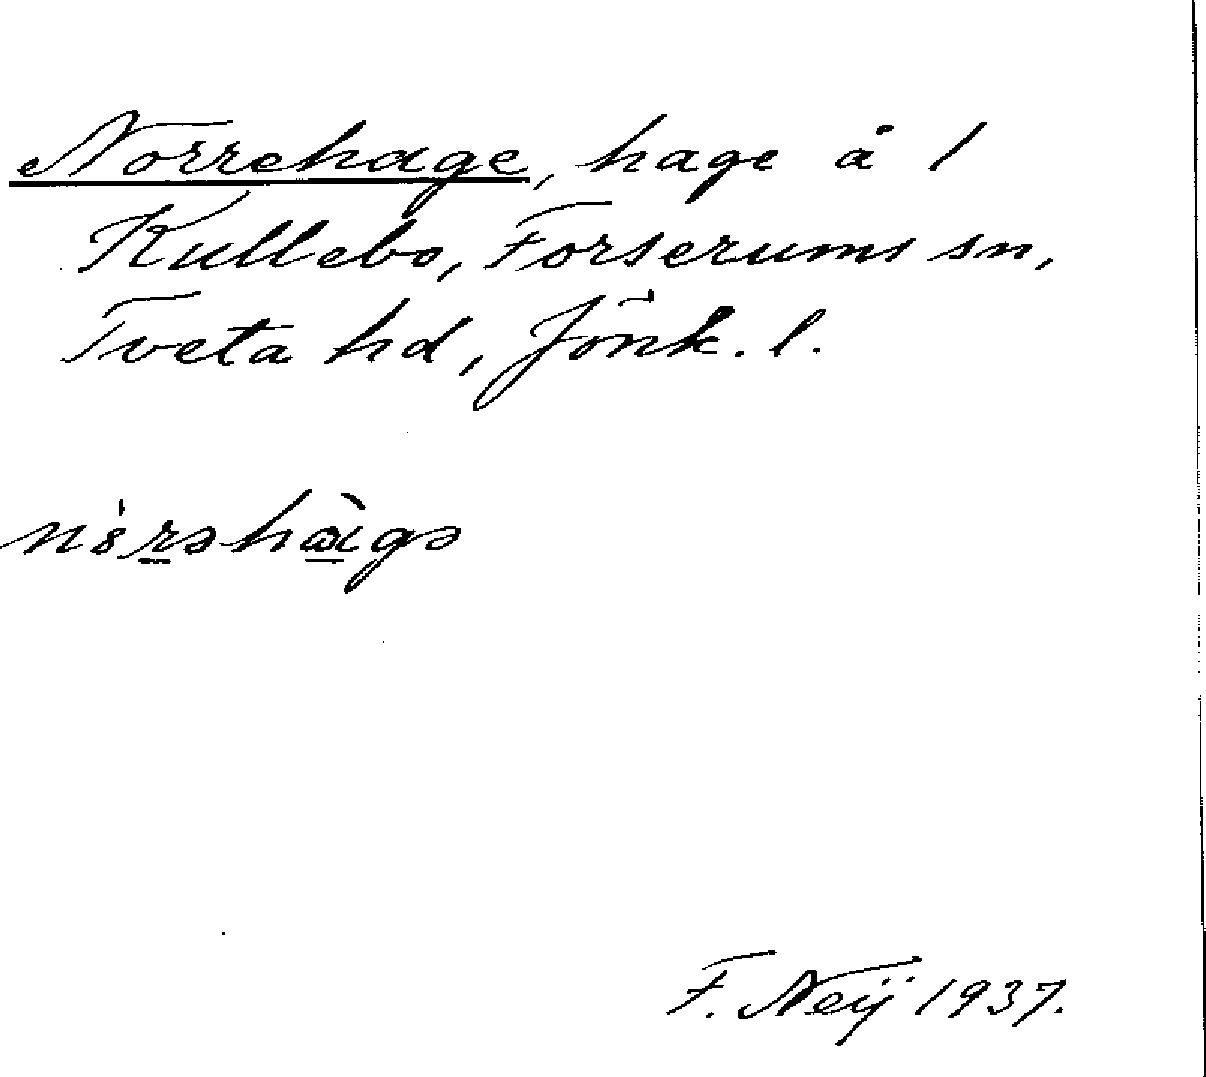 Norrehage, hage å 1
Kullebo, Forserums sn,
Tveta hd, Jönk. l.
F. Neij 1937.